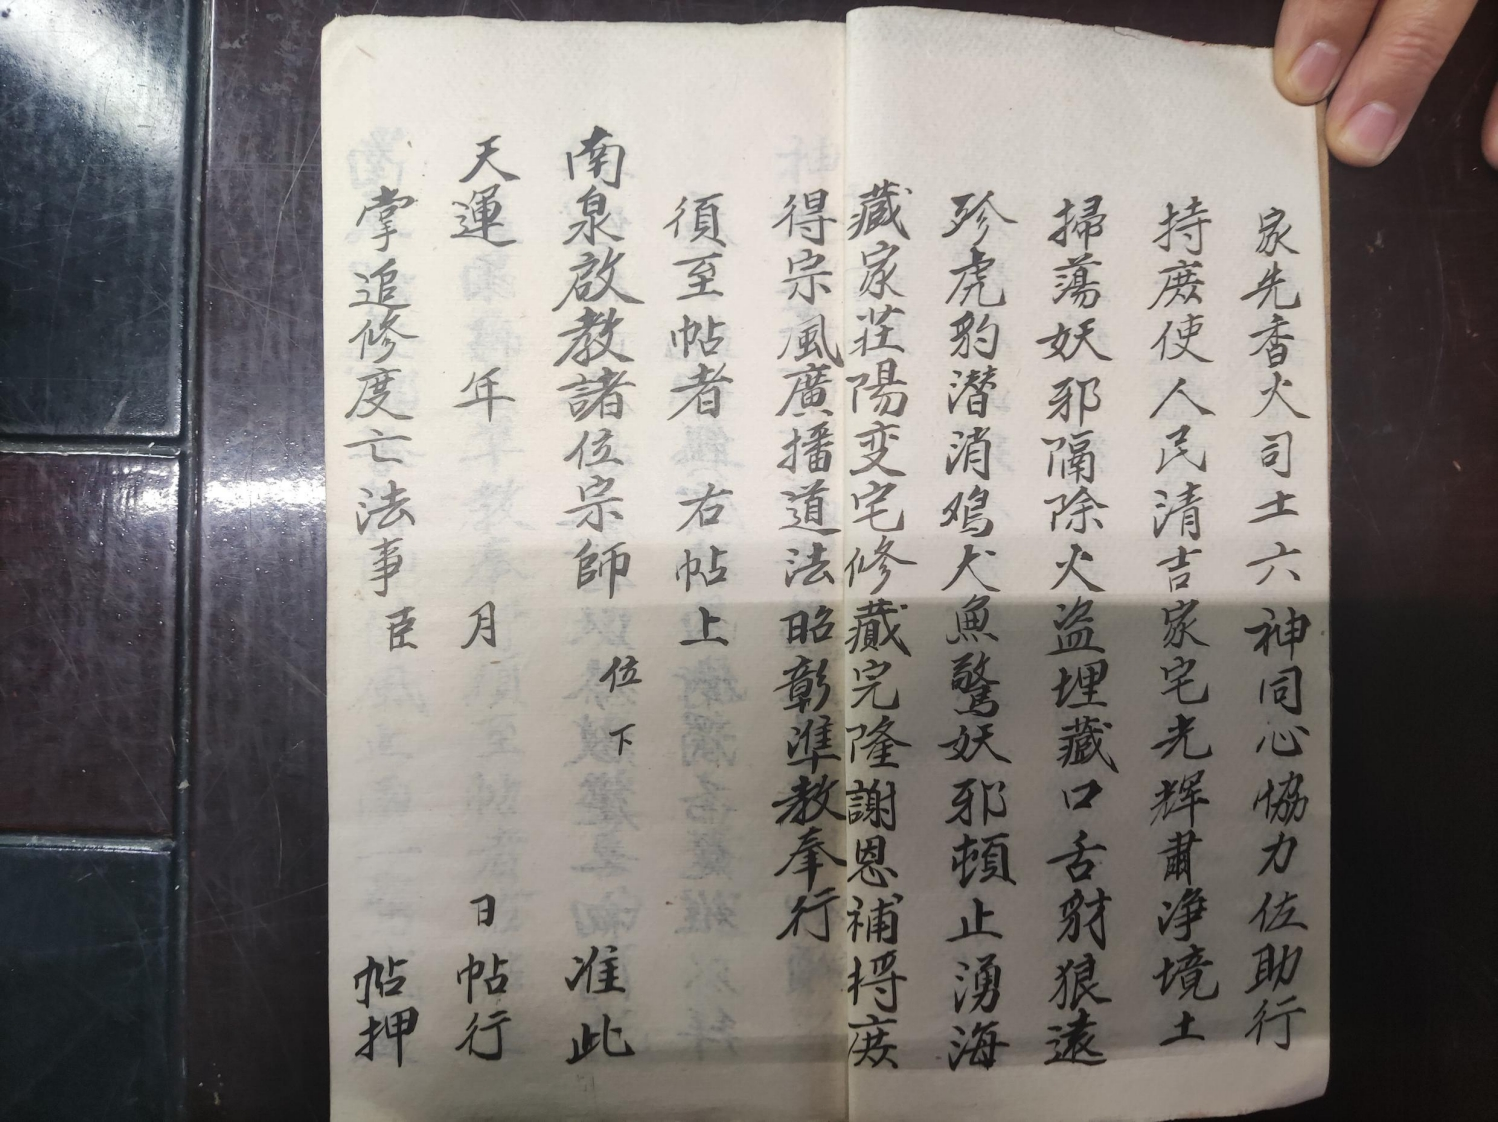 家先香火司土六神同心協力佐助行
持庶使人民清吉家宅光辉肅净境土
掃蕩妖邪隔除火盗埋藏口舌豺狼遠
殄虎豹潜消鸡犬魚驚妖邪頓止湧海
藏家荘陽变宅修藏完隆謝恩補捋庶
得宗風廣播道法昭彰準教奉行
須至帖者 右帖上
南泉啟教諸位宗師 位下 准此
天運 年 月 日帖行
掌追修度亡法事臣 帖押